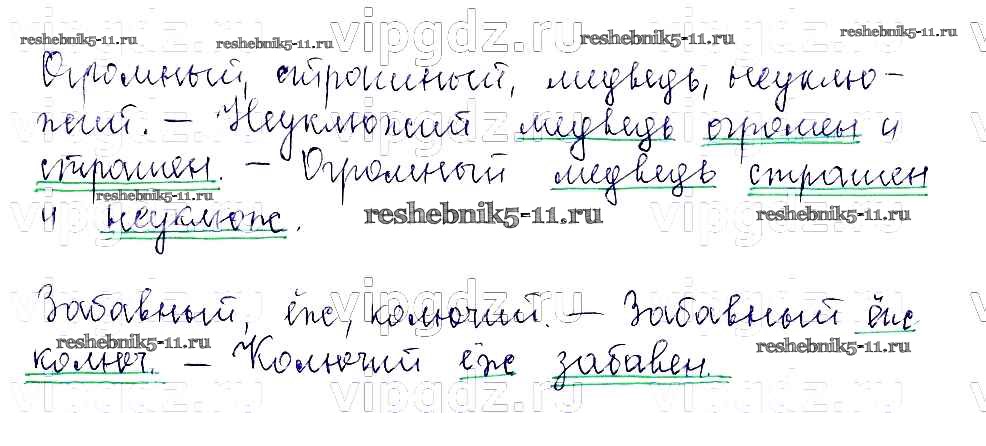 vipgdz.ru vipgdz.ru vipgdz.ru
reshebnik5-11.ru reshebnik5-11.ru reshebnik5-11.ru reshebnik5-11.ru
Огромный, страшный, медведь, неуклю-
жий. – Неуклюжий медведь огромен и
страшен. – Огромный медведь страшен
reshebnik5-11.ru
и неуклюж.
reshebnik5-11.ru reshebnik5-11.ru
Забавный, ёж, колючий. – Забавный ёж
reshebnik5-11.ru reshebnik5-11.ru
колюч. – Колючий ёж забавен.
vipgdz.ru vipgdz.ru vipgdz.ru